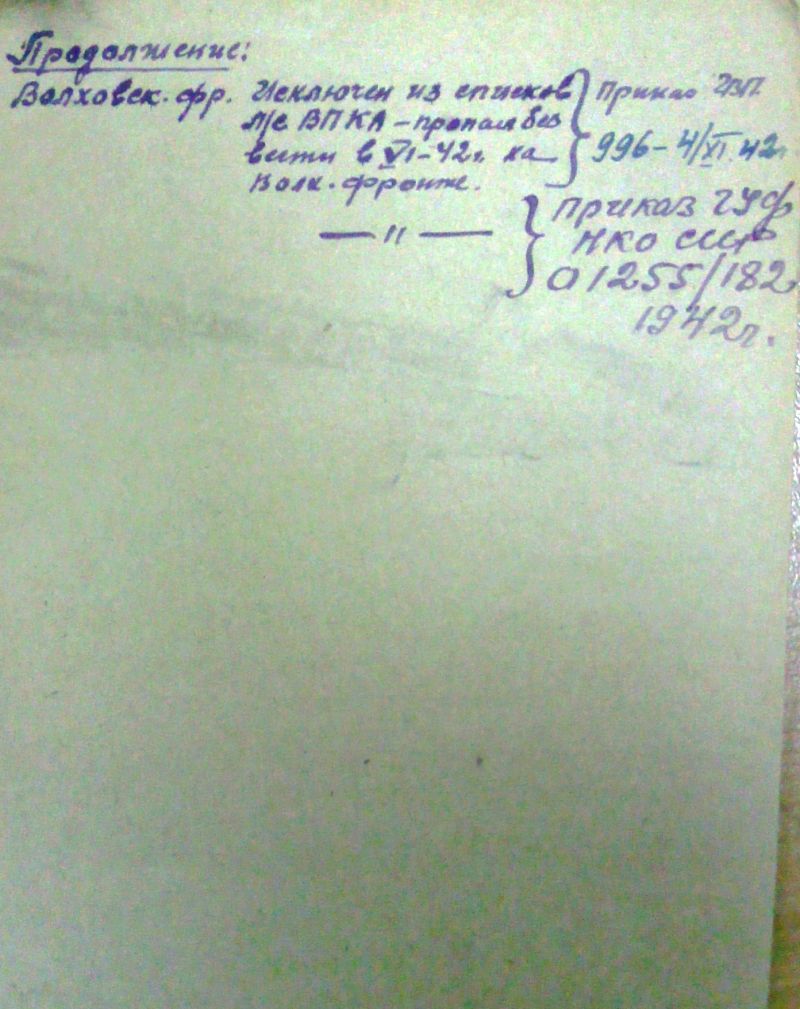 Продолжение:
Волховск. фр. Исключен из списков } Приказ
л/с ВПКА – пропал без
вести в VI-42г. на 996 – 4/XI. 42г
Волх. фронте.
— " — } Приказ ГУФ
НКО СССР
01255/182
1942г.